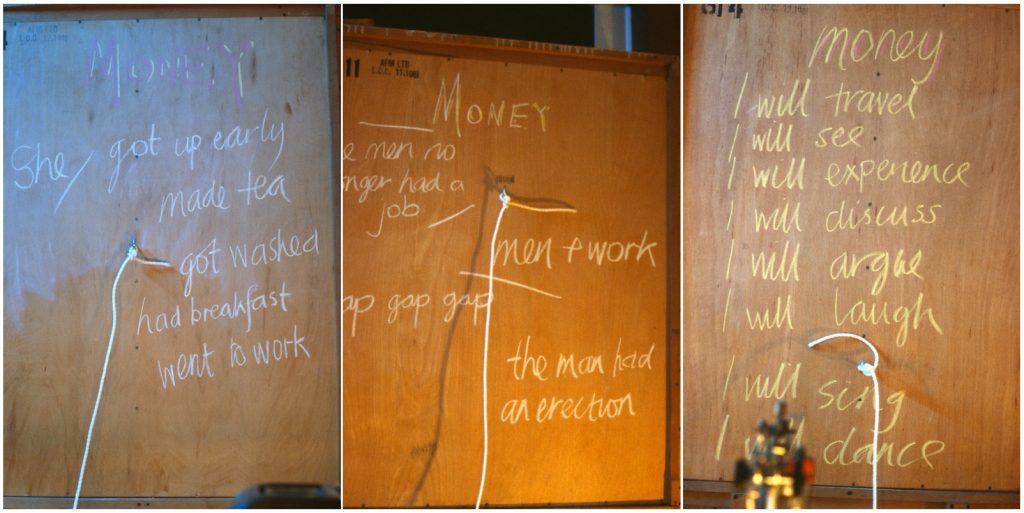 MONEY
She / got up early
made tea
got washed
had breakfast
went to work
11
AFM LTD
L.O.C. 11.1981
MONEY
e men no
nger had a
job
men + work
ap gap gap
the man had
an erection
money
I will travel
I will see
I will experience
I will discuss
I will argue
I will laugh
I will sing
I will dance